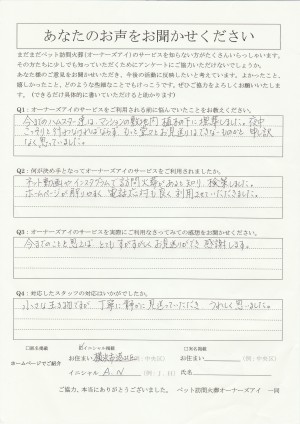 あなたのお声をお聞かせください
まだまだペット訪問火葬(オーナーズアイ)のサービスを知らない方がたくさんいらっしゃいます。
その方たちに少しでも知っていただくためにアンケートにご協力いただけないでしょうか。
あなた様のご意見をお聞かせいただき、今後の活動に反映したいと考えています。よかったこと、
嬉しかったこと、どのような些細なことでもけっこうです。ぜひご協力をよろしくお願いいたしま
す。(できるだけ具体的に書いていただけると助かります)
Q1:オーナーズアイのサービスをご利用される前に悩んでいたことをお教えください。
今までのハムスター達は、マンションの敷地内 植木の下に埋葬しました。夜中
なく思っていました。
Q2:何が決め手となってオーナーズアイのサービスをご利用されましたか。
ネット動画やインスタグラムで訪問火葬があると知り、検索しました。
ホームページが解りやすく、電話応対も良く利用させていただきました。
Q3:オーナーズアイのサービスを実際にご利用なさってみての感想をお聞かせください。
今までのことを思えば とてもすがすがしくお見送りができ 感謝します。
Q4:対応したスタッフの対応はいかがでしたか。
小さな生き物ですが、丁寧に静かに見送っていただき、うれしく思いました。
□匿名掲載 ☑イニシャル掲載 □実名掲載
ホームページでご紹介
お住まい 横浜市港北区 お住まい (例:中央区)
イニシャル A.N (例:I.H) 氏名
ご協力、本当にありがとうございました。 ペット訪問火葬オーナーズアイ 一同